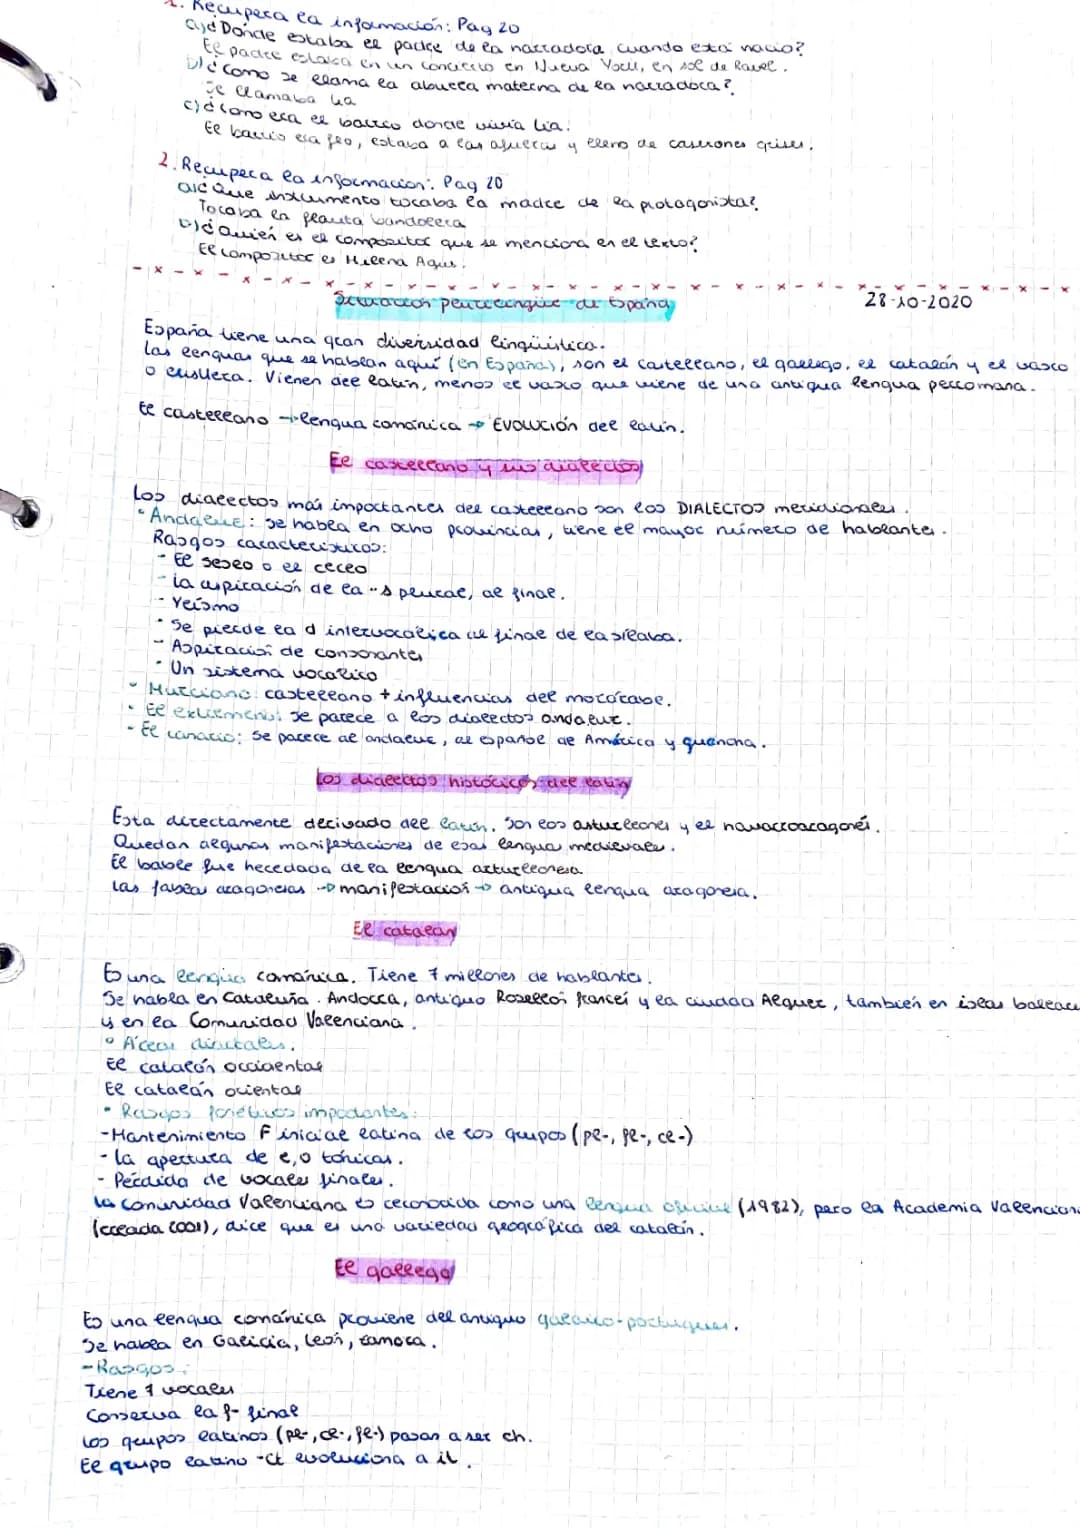 1. Recupera la información: Pag 20
a) ¿Donde estaba el padre de la narradora cuando esta nacio?
El padre estaba en un concierto en Nueva York, en sol de Ravel.
b) ¿Como se llama la abuela materna de la narradora?
Se llamaba Lia
c) ¿Como era el barrio donde vivia Lia?
El barrio era feo, estaba a las afueras y lleno de caserones grises.
2. Recupera la informacion: Pag 20
a) ¿Que instrumento tocaba la madre de la protagonista?
Tocaba la flauta bandolera
b) ¿Quién es el compositor que se menciona en el texto?
El compositor es Milena Agus.
Situacion plurilingüe de España
28-10-2020
España tiene una gran diversidad lingüística.
Las lenguas que se hablan aquí (en España), son el castellano, el gallego, el catalán y el vasco
o euskera. Vienen del latín, menos el vasco que viene de una antigua lengua prerromana.
El castellano → lengua románica → EVOLUCIÓN del latín.
El castellano y sus dialectos
Los dialectos más importantes del castellano son los DIALECTOS meridionales.
• Andaluz: Se habla en ocho provincias, tiene el mayor número de hablantes.
Rasgos característicos:
- El seseo o el ceceo
- La aspiración de la -s plural, al final.
- Yeísmo
- Se pierde la d intervocálica al final de la sílaba.
- Aspiración de consonantes
- Un sistema vocálico
• Murciano: castellano + influencias del mozárabe.
• El extremeño: Se parece a los dialectos andaluz.
• El canario: Se parece al andaluz, al español de América y guancha.
Los dialectos históricos del latín
Esta directamente derivado del latín. Son los asturleones y el navarroaragonés.
Quedan algunas manifestaciones de esas lengua medievales.
El bable fue heredada de la lengua asturleonesa
Las fablas aragonesas → manifestación → antigua lengua aragonesa.
El catalán
Es una lengua románica. Tiene 7 millones de hablantes.
Se habla en Cataluña. Andorra, antiguo Rosellón francés y la ciudad Alguer, también en islas baleare
y en la Comunidad Valenciana.
• Áreas dialectales.
El catalán occidental
El catalán oriental
• Rasgos fonéticos importantes:
- Mantenimiento F inicial latina de los grupos (pl-, fl-, cl-)
- La apertura de e,o tónicas.
- Perdida de vocales finales.
La Comunidad Valenciana es reconocida como una lengua oficial (1982), pero la Academia Valenciana
(creada 2001), dice que es una variedad geográfica del catalán.
El gallego
Es una lengua románica proviene del antiguo galaico-portugues.
Se habla en Galicia, León, Zamora.
- Rasgos:
Tiene 7 vocales
Conserva la f- final
Los grupos latinos (pl-, cl-, fl-) pasan a ser ch.
El grupo latino -ct evoluciona a it.